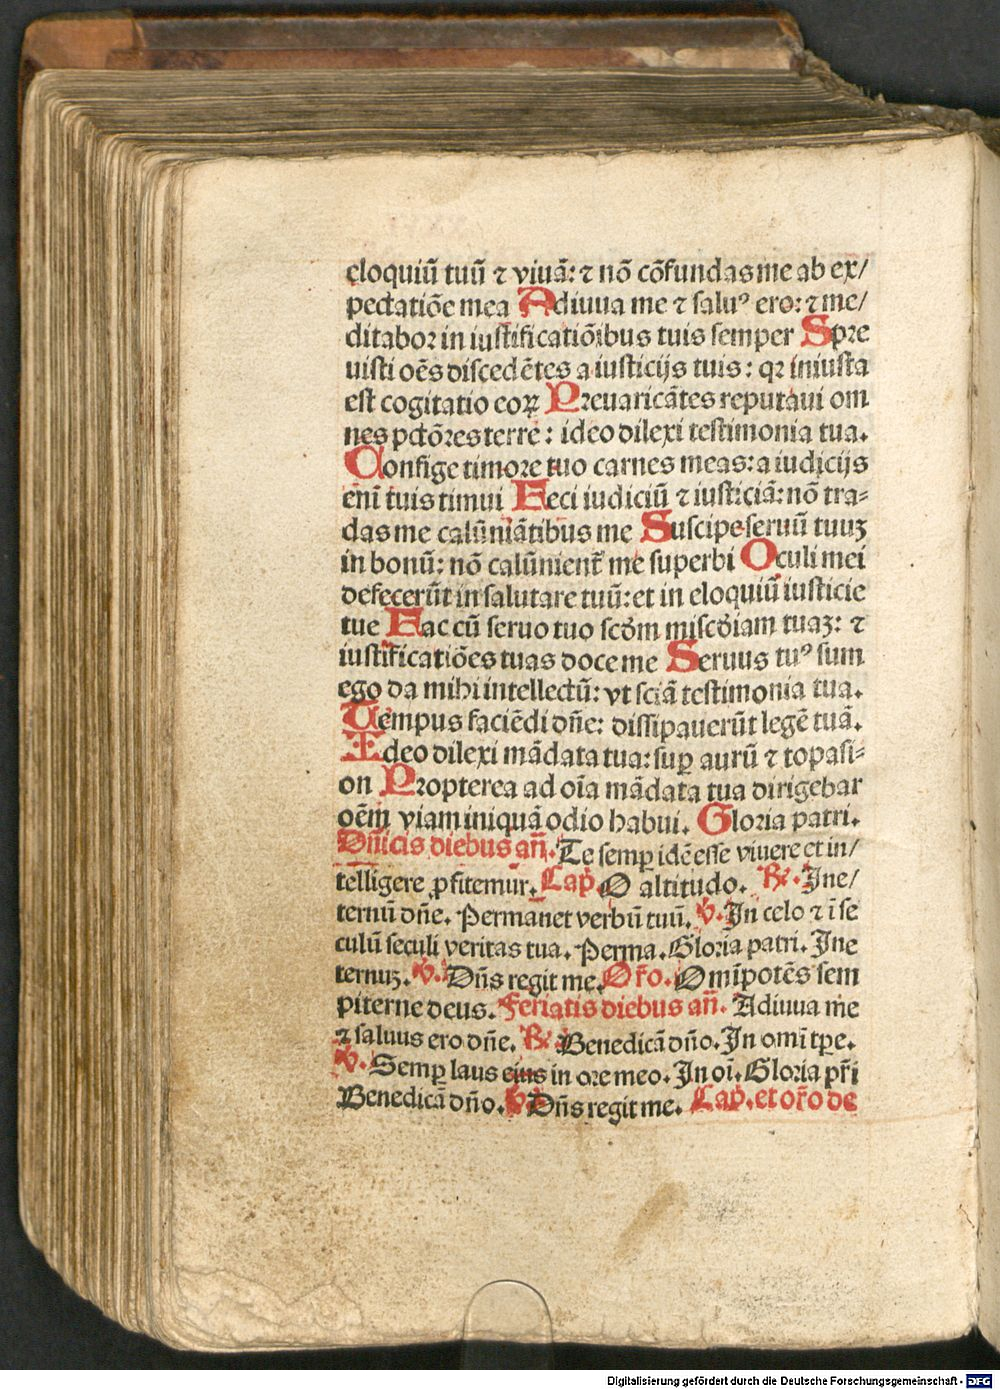 eloquiū tuū ⁊ viuā: ⁊ nō cōfundas me ab ex/
pectatiōe mea Adiuua me ⁊ saluꝰ ero: ⁊ me/
ditabor in iustificatiōibus tuis semper Spre
uisti oēs discedētes a iusticijs tuis: qꝛ iniusta
est cogitatio eoꝝ Preuaricātes reputaui om
nes pctōres terre: ideo dilexi testimonia tua.
Confige timore tuo carnes meas: a iudicijs
enī tuis timui Feci iudiciū ⁊ iusticiā: nō tra-
das me calūniātibus me Suscipe seruū tuuꝫ
in bonū: nō calūnient̄ me superbi Oculi mei
defecerūt in salutare tuū: et in eloquiū iusticie
tue Fac cū seruo tuo scd̄m miscd̄iam tuaꝫ: ⁊
iustificatiōes tuas doce me Seruus tuꝰ sum
ego da mihi intellectū: vt sciā testimonia tua.
Tempus faciēdi dn̄e: dissipauerūt legē tuā.
Ideo dilexi mādata tua: suꝑ aurū ⁊ topasi-
on Propterea ad oīa mādata tua dirigebar
oēm viam iniquā odio habui. Gloria patri.
Dn̄icis diebus an̄. Te semꝑ idē esse viuere et in/
telligere ꝓfitemur. Cap. O altitudo. ℟. Jne/
ternū dn̄e. Permanet verbū tuū. ℣. Jn celo ⁊ ī se
culū seculi veritas tua. Perma. Gloria patri. Jne
ternuꝫ. ℣. Dn̄s regit me. Or̄o. Omīpotēs sem
piterne deus. Feriatis diebus an̄. Adiuua me
⁊ saluus ero dn̄e. ℟. Benedicā dn̄o. Jn omī tꝑe.
℣. Semꝑ laus eius in ore meo. Jn oī. Gloria pr̄i
Benedicā dn̄o. ℣. Dn̄s regit me. Cap. et or̄o de
Digitalisierung gefördert durch die Deutsche Forschungsgemeinschaft - DFG